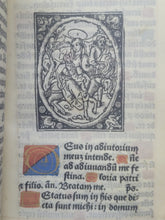 Deus in adiutorium
meum intende.
ad adiuuandū me fe
stina. Gloria patri
et filio. āñ. Beatam me.
Letatus sum in his que
dicta sunt michi: in domum